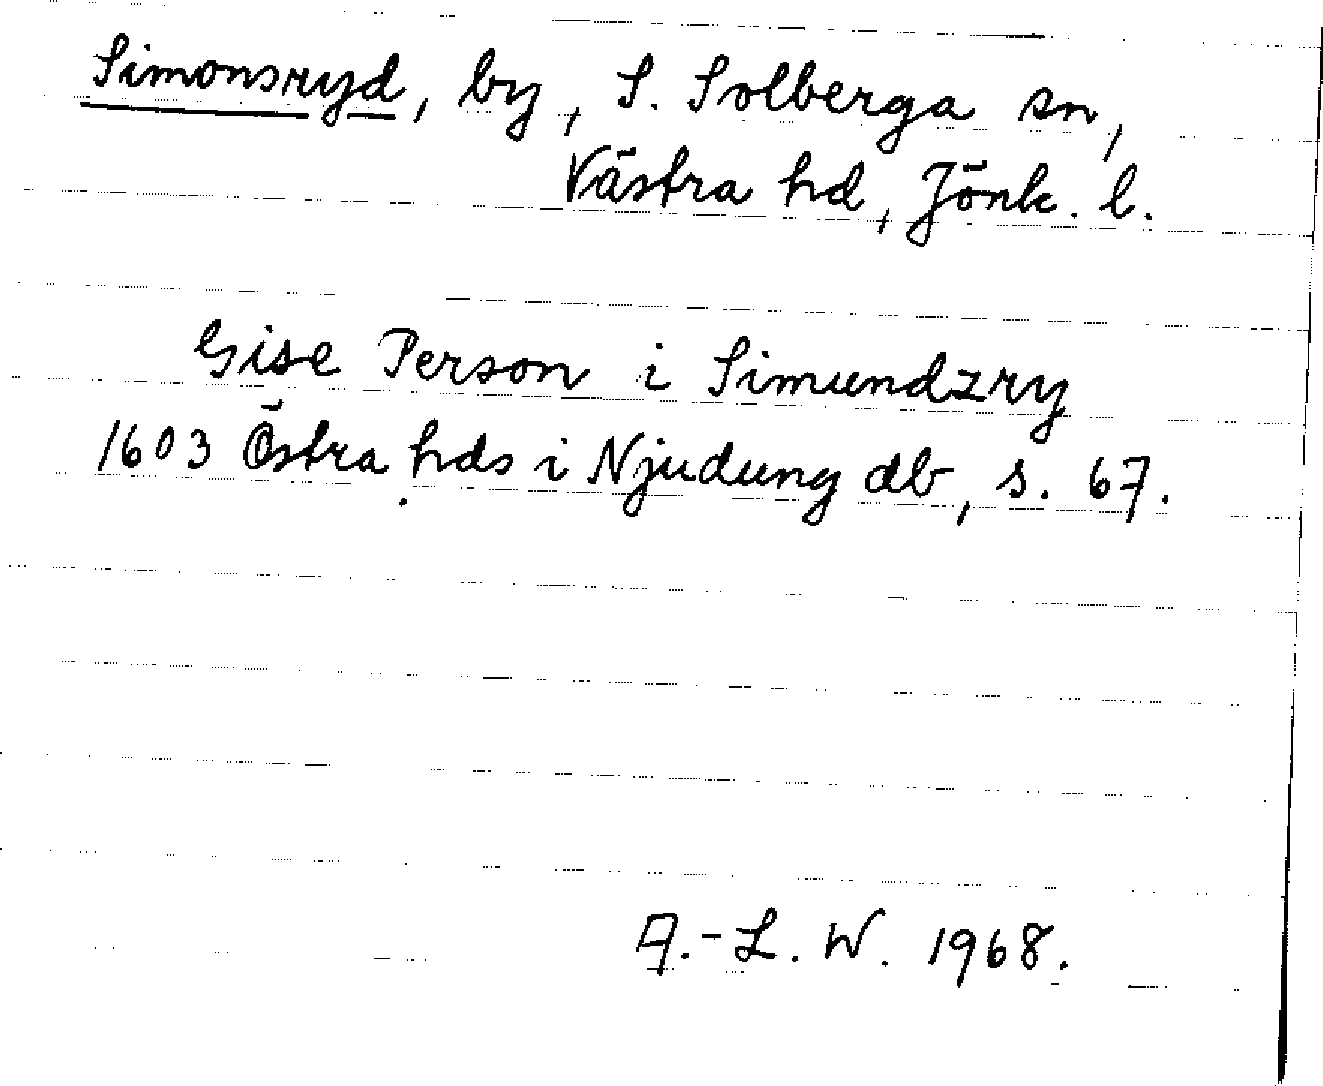 Simonsryd, by, S. Solberga sn,
Västra hd, Jönk. l.
Gise Person i Simundzry
1603 Östra hds i Njudung db, s. 67.
A.-L. W. 1968.